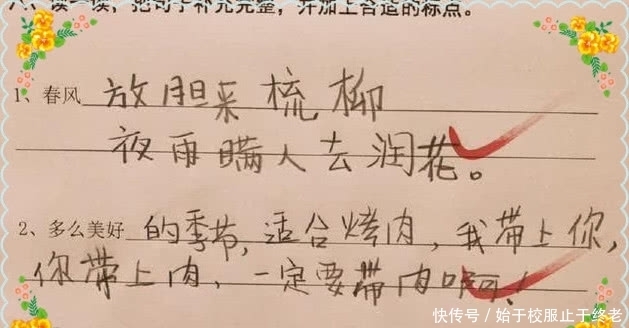 八、读一读，把句子补充完整，并加上合适的标点。
1、春风 放胆来梳柳
夜雨瞒人去润花。
2、多么美好 的季节，适合烤肉，我带上你，
你带上肉，一定要带肉啊！
快传号／始于校服止于终老